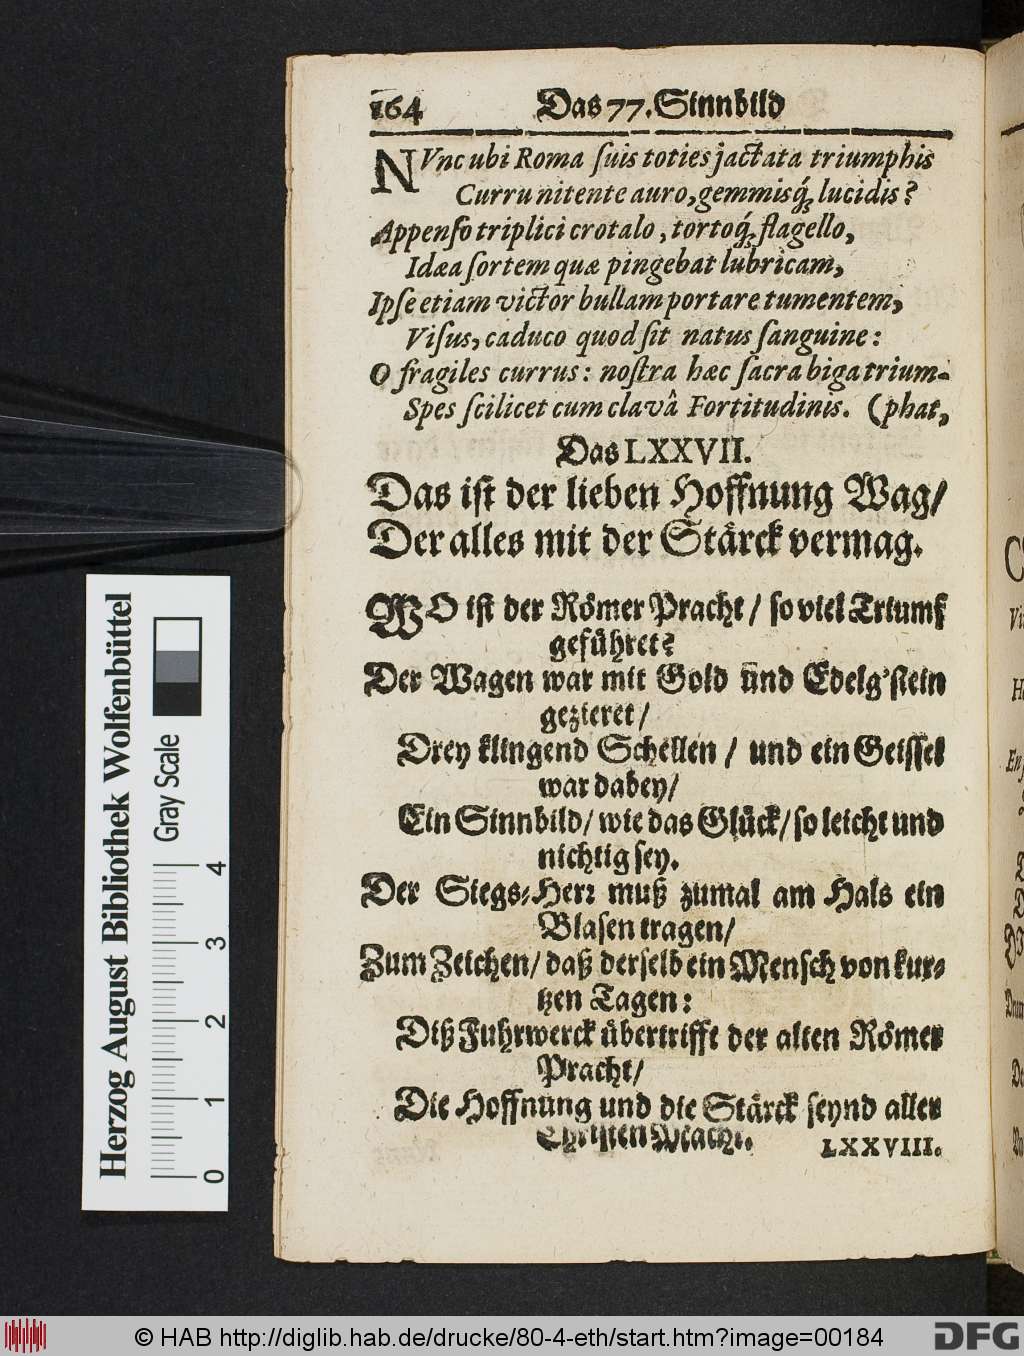 164 Das 77. Sinnbild
NVnc ubi Roma ſuis toties jactata triumphis
Curru nitente auro, gemmisq́; lucidis?
Appenſo triplici crotalo, tortoq́; flagello,
Idæa ſortem quæ pingebat lubricam,
Ipſe etiam victor bullam portare tumentem,
Viſus, caduco quod ſit natus ſanguine:
O fragiles currus: noſtra hæc ſacra biga trium-
Spes ſcilicet cum clavâ Fortitudinis. (phat,
Das LXXVII.
Das iſt der lieben Hoffnung Wag/
Der alles mit der Stärck vermag.
WO iſt der Römer Pracht / ſo viel Triumf
geführet?
Der Wagen war mit Gold und Edelg'ſtein
gezieret/
Drey klingend Schellen / und ein Geiſſel
war dabey/
Ein Sinnbild/ wie das Glück/ ſo leicht und
nichtig ſey.
Der Siegs-Herr muß zumal am Hals ein
Blaſen tragen/
Zum Zeichen/ daß derſelb ein Menſch von kur-
tzen Tagen:
Diß Fuhrwerck übertrifft der alten Römer
Pracht/
Die Hoffnung und die Stärck ſeynd aller
Chriſten Macht. LXXVIII.
Herzog August Bibliothek Wolfenbüttel
Gray Scale
0 1 2 3 4
© HAB http://diglib.hab.de/drucke/80-4-eth/start.htm?image=00184
DFG